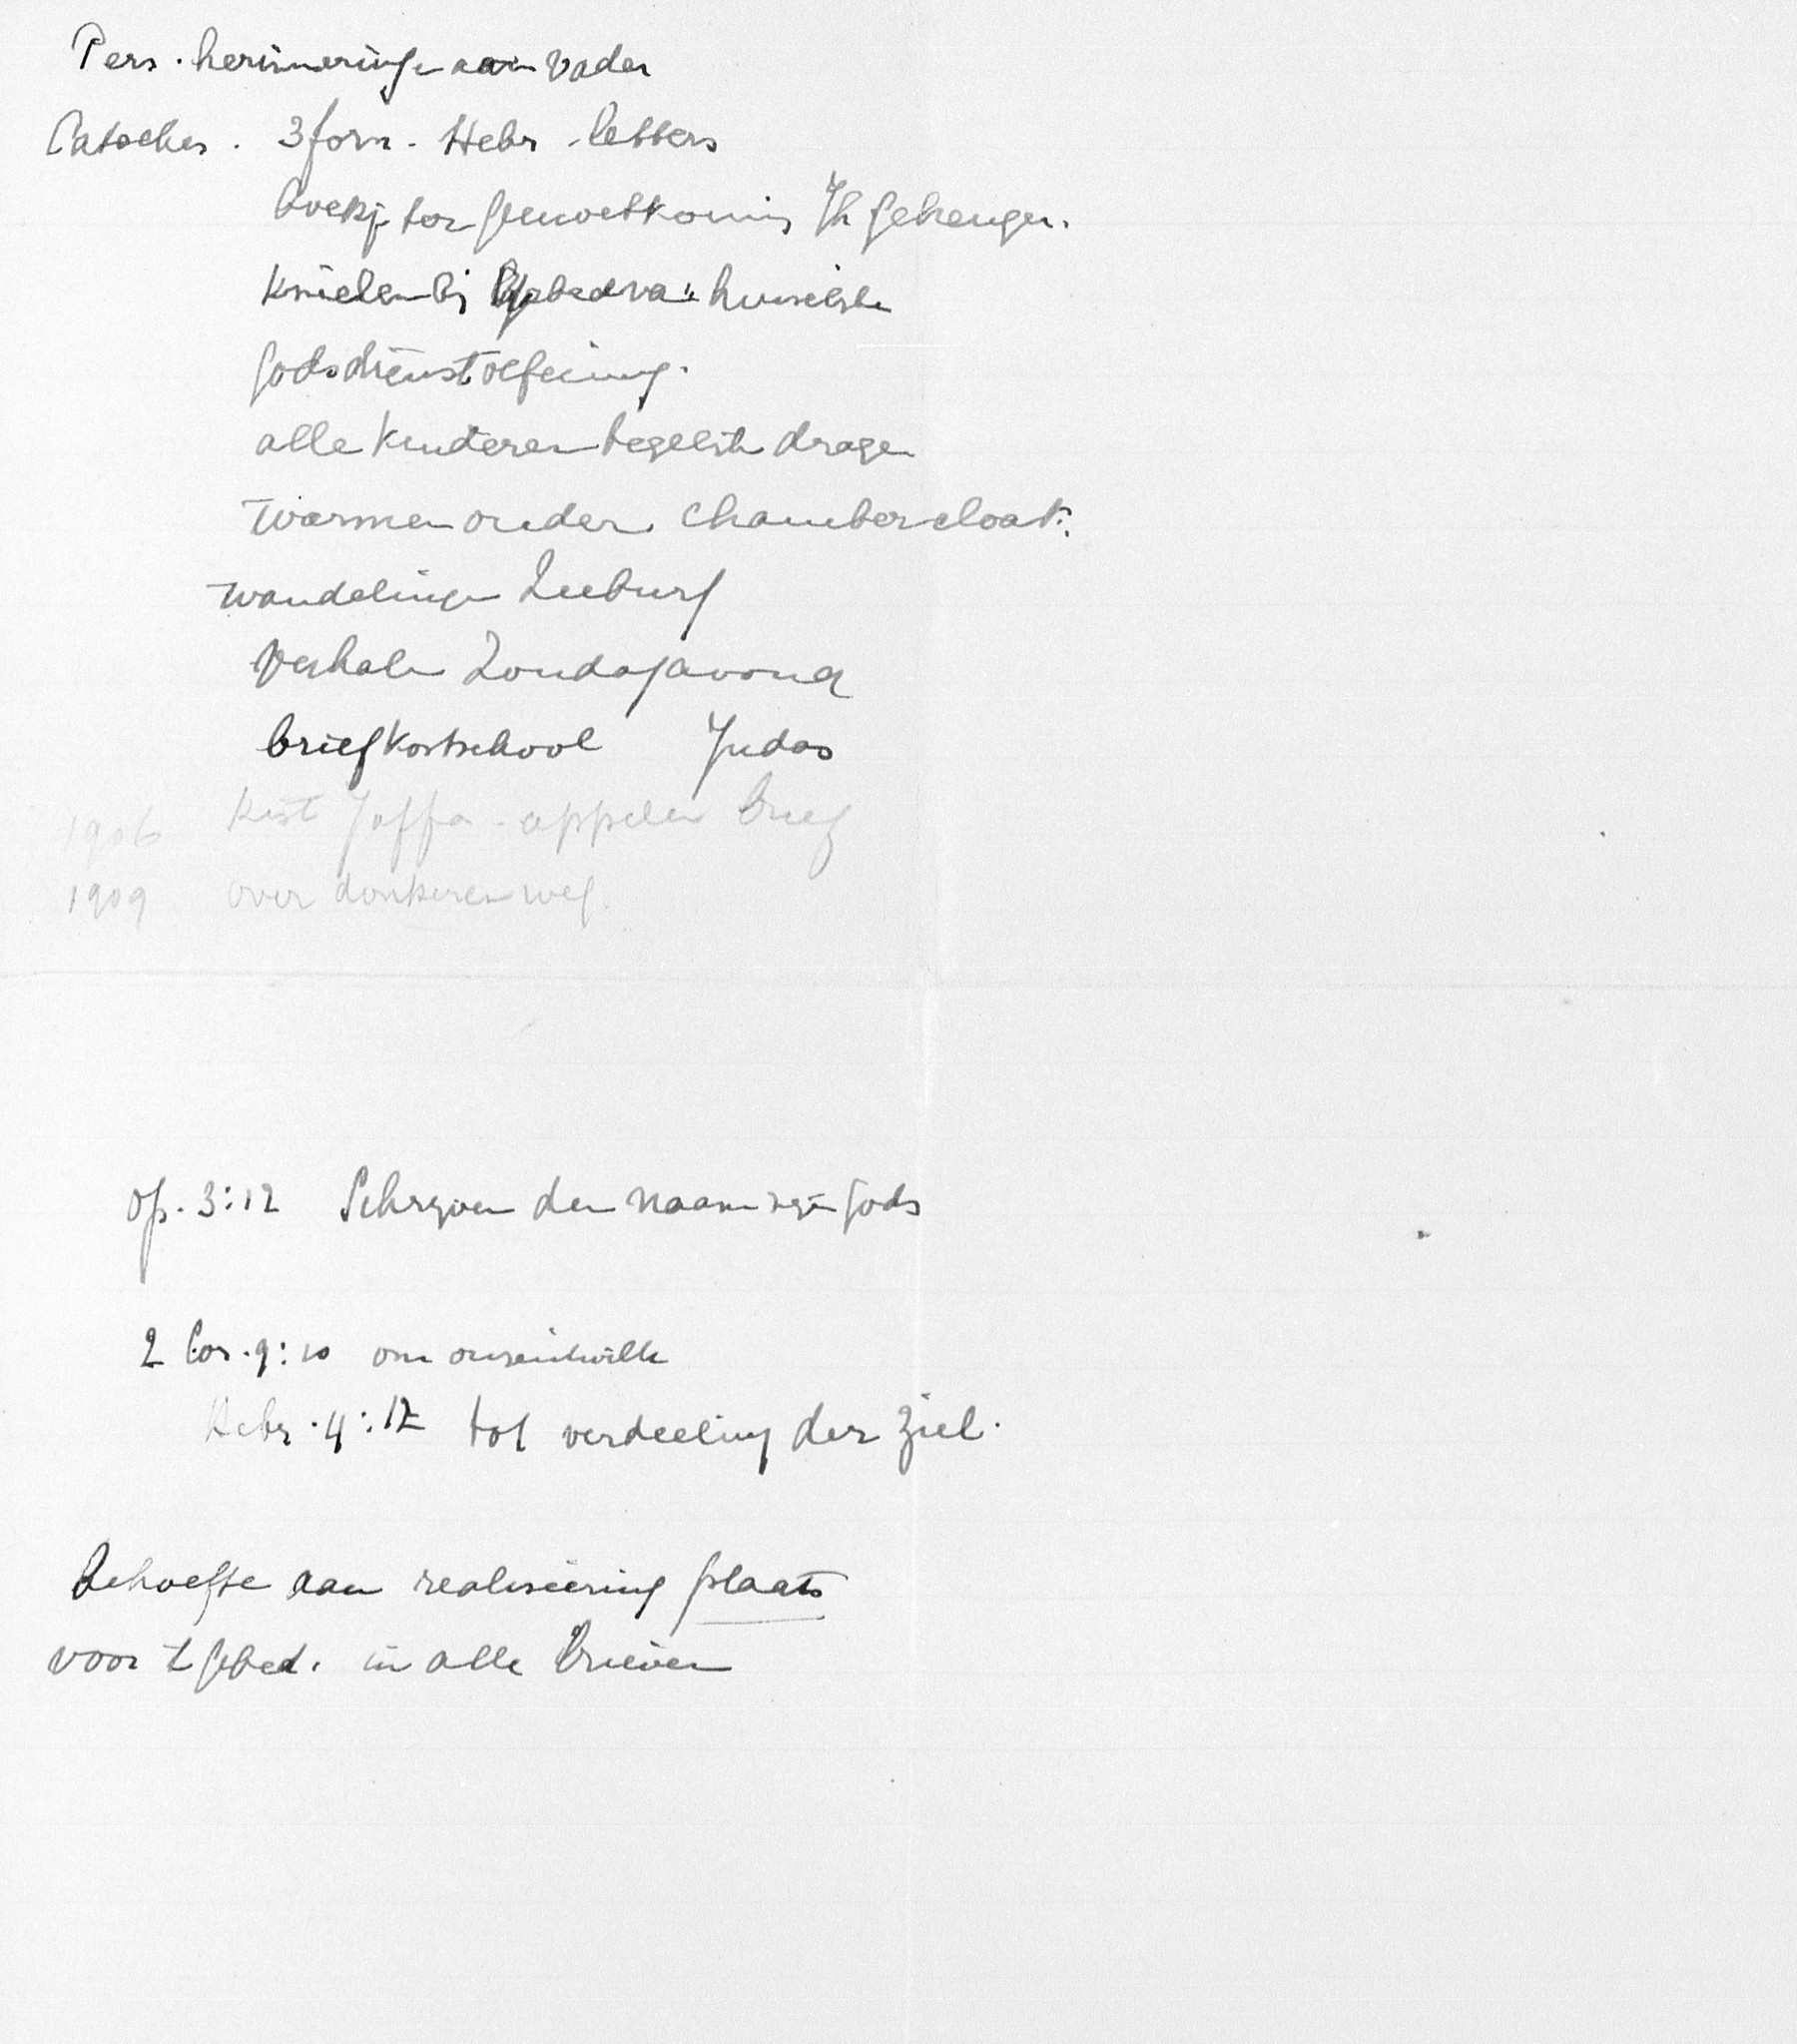 Pers. herinneringen aan Vader
Catechis. 3 form. Hebr. letters
boekje ter Jh geheugen.
Knielen bij gebed van huiselijke
godsdienstoefening.
alle kinderen tegelijk dragen
warmen onder chambercloak.
wandelingen Zeeburg
Verhalen Zondagavond
brief kostschool Judas
1906 Kist Jaffa-appelen brief
1909 over donkeren weg.
Op. 3:12 Schrijven den naam mijn Gods
2 Cor. 9:10 om onzentwille
Hebr. 4:12 tot verdeeling der ziel.
Behoefte aan realiseering plaats
voor 't gebed. in alle brieven